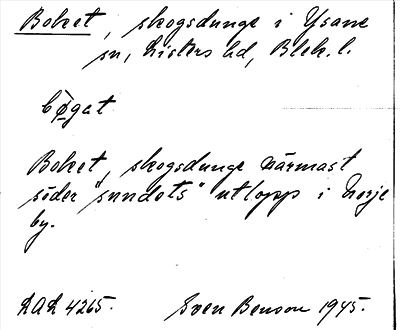 Boket, skogsdunge i Ysane
sn, Listers hd, Blek. l.
Boket, skogsdunge närmast
söder "sundets" utlopp i Norje
by.
LAL 4265. Sven Benson 1945.